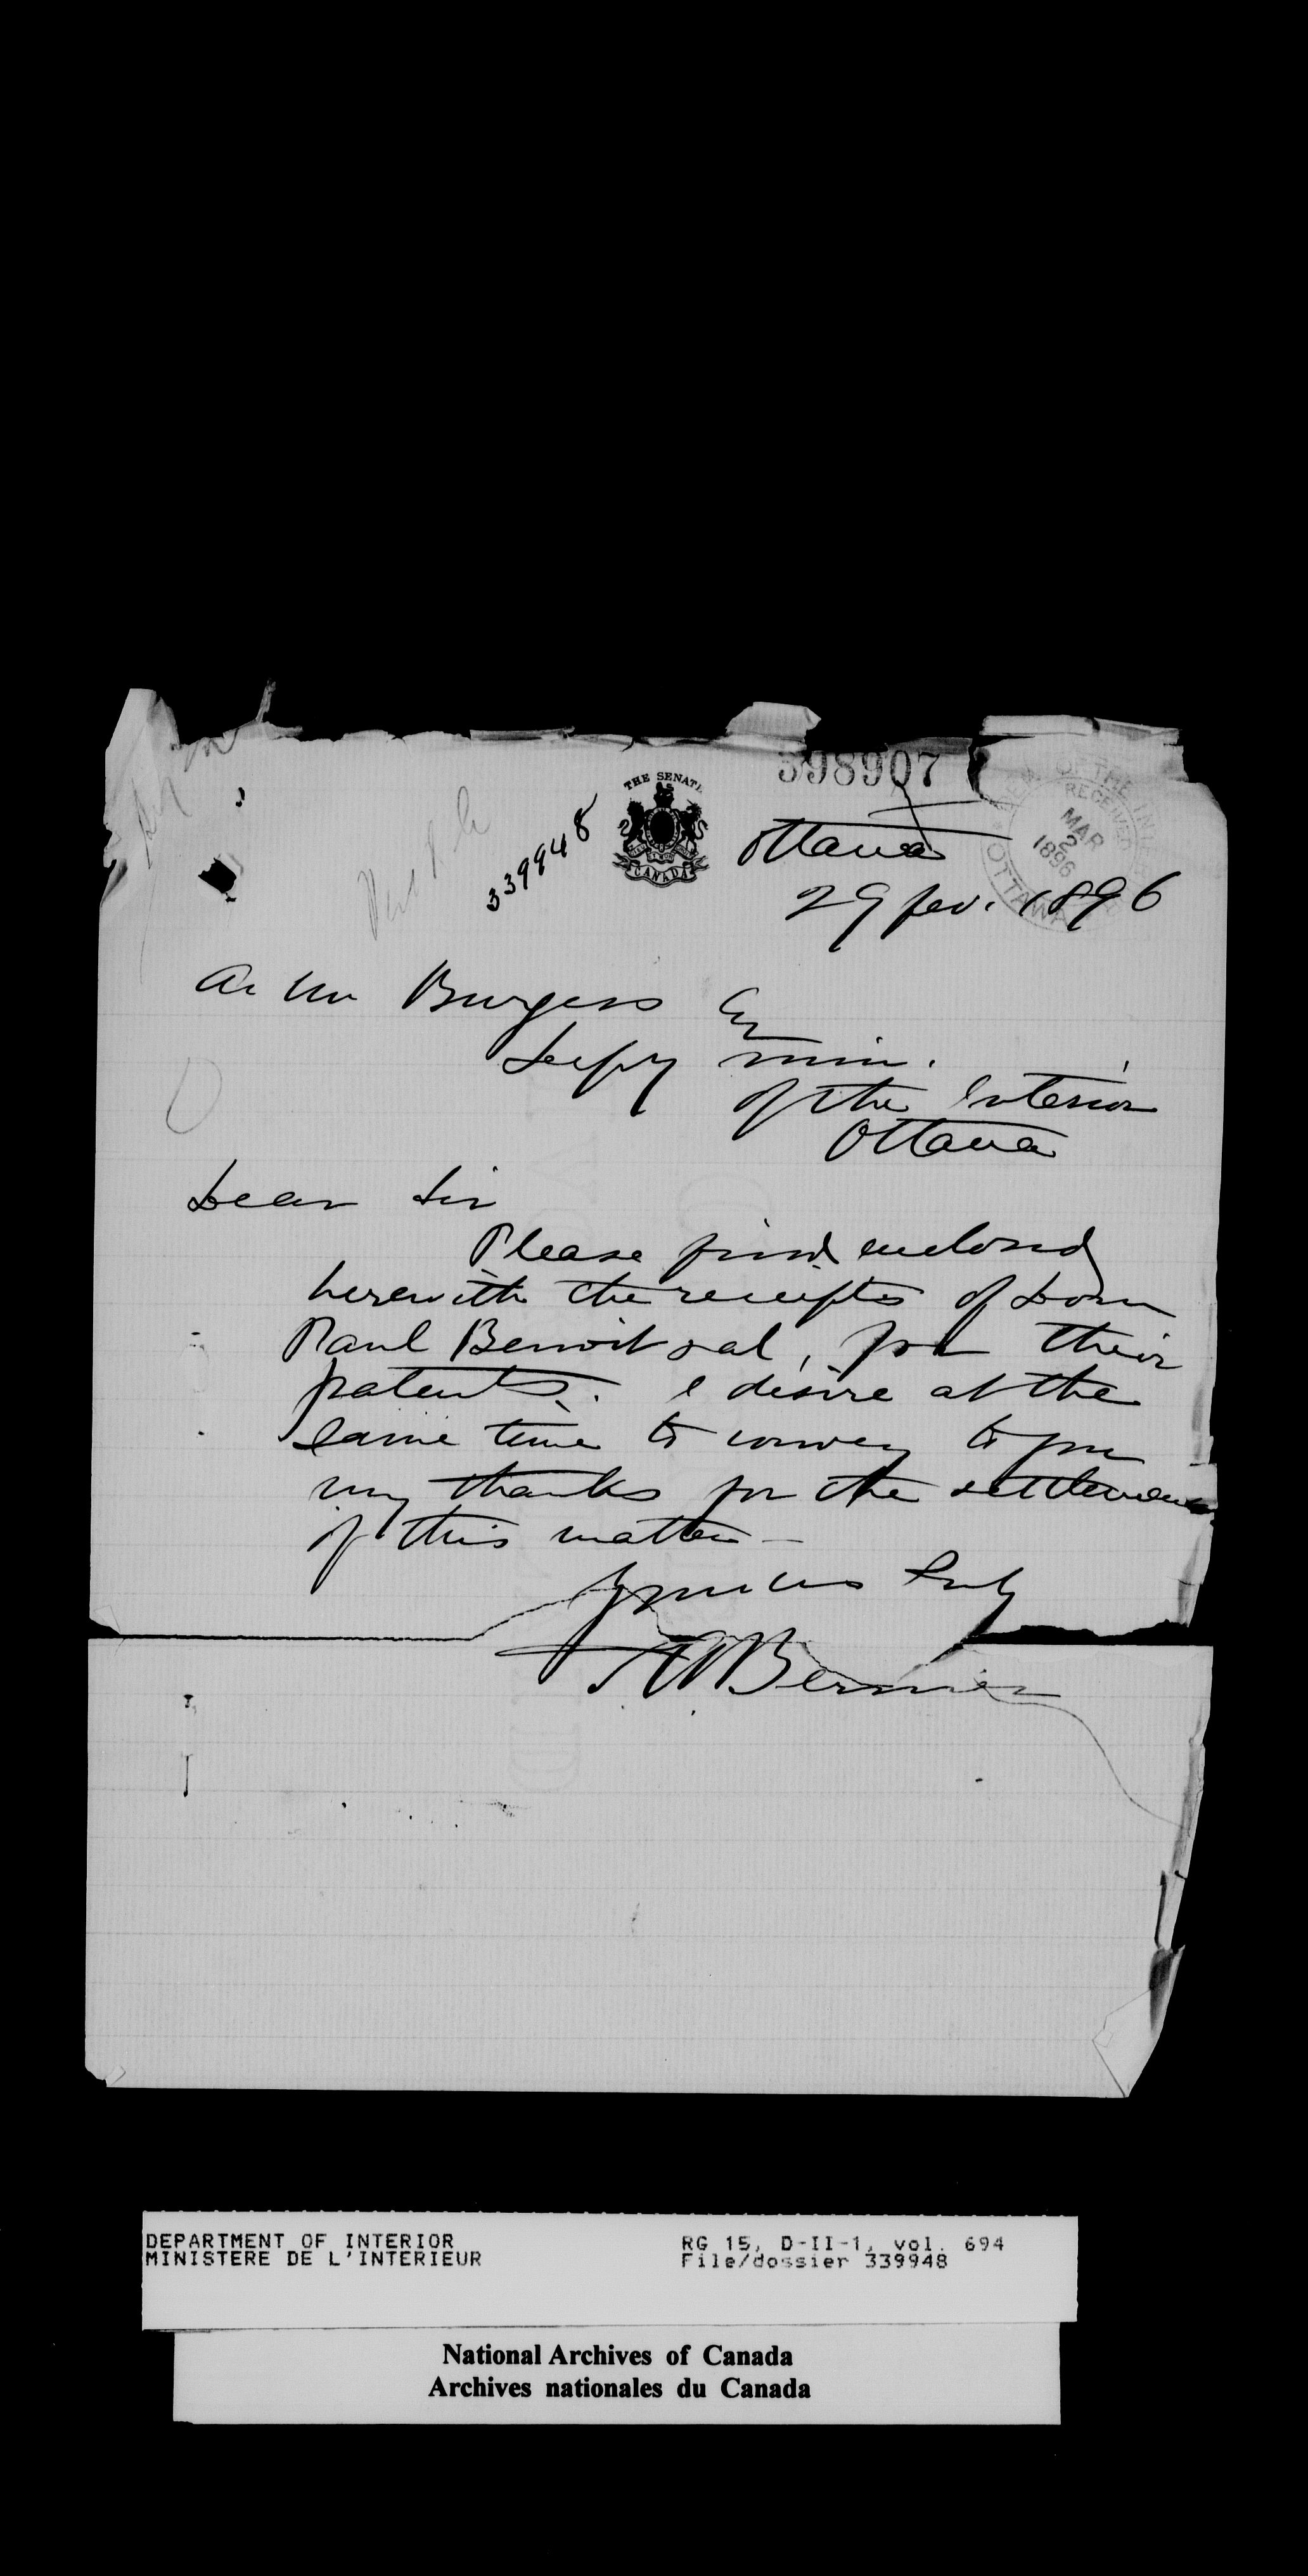 598907
THE SENATE
CANADA
339948
DEPT OF THE INTERIOR
RECEIVED
MAR
2
1896
OTTAWA
Ottawa
29 fev. 1896
Burgess Esq
Depy min.
of the Interior
Ottawa
Dear Sir
Please find enclosed
herewith the receipts of Dom
Paul Benoit & al, for their
patents. I desire at the
same time to convey to you
my thanks for the settlement
of this matter —
Yours truly
Bernier
DEPARTMENT OF INTERIOR
MINISTERE DE L'INTERIEUR
RG 15, D-II-1, vol. 694
File/dossier 339948
National Archives of Canada
Archives nationales du Canada